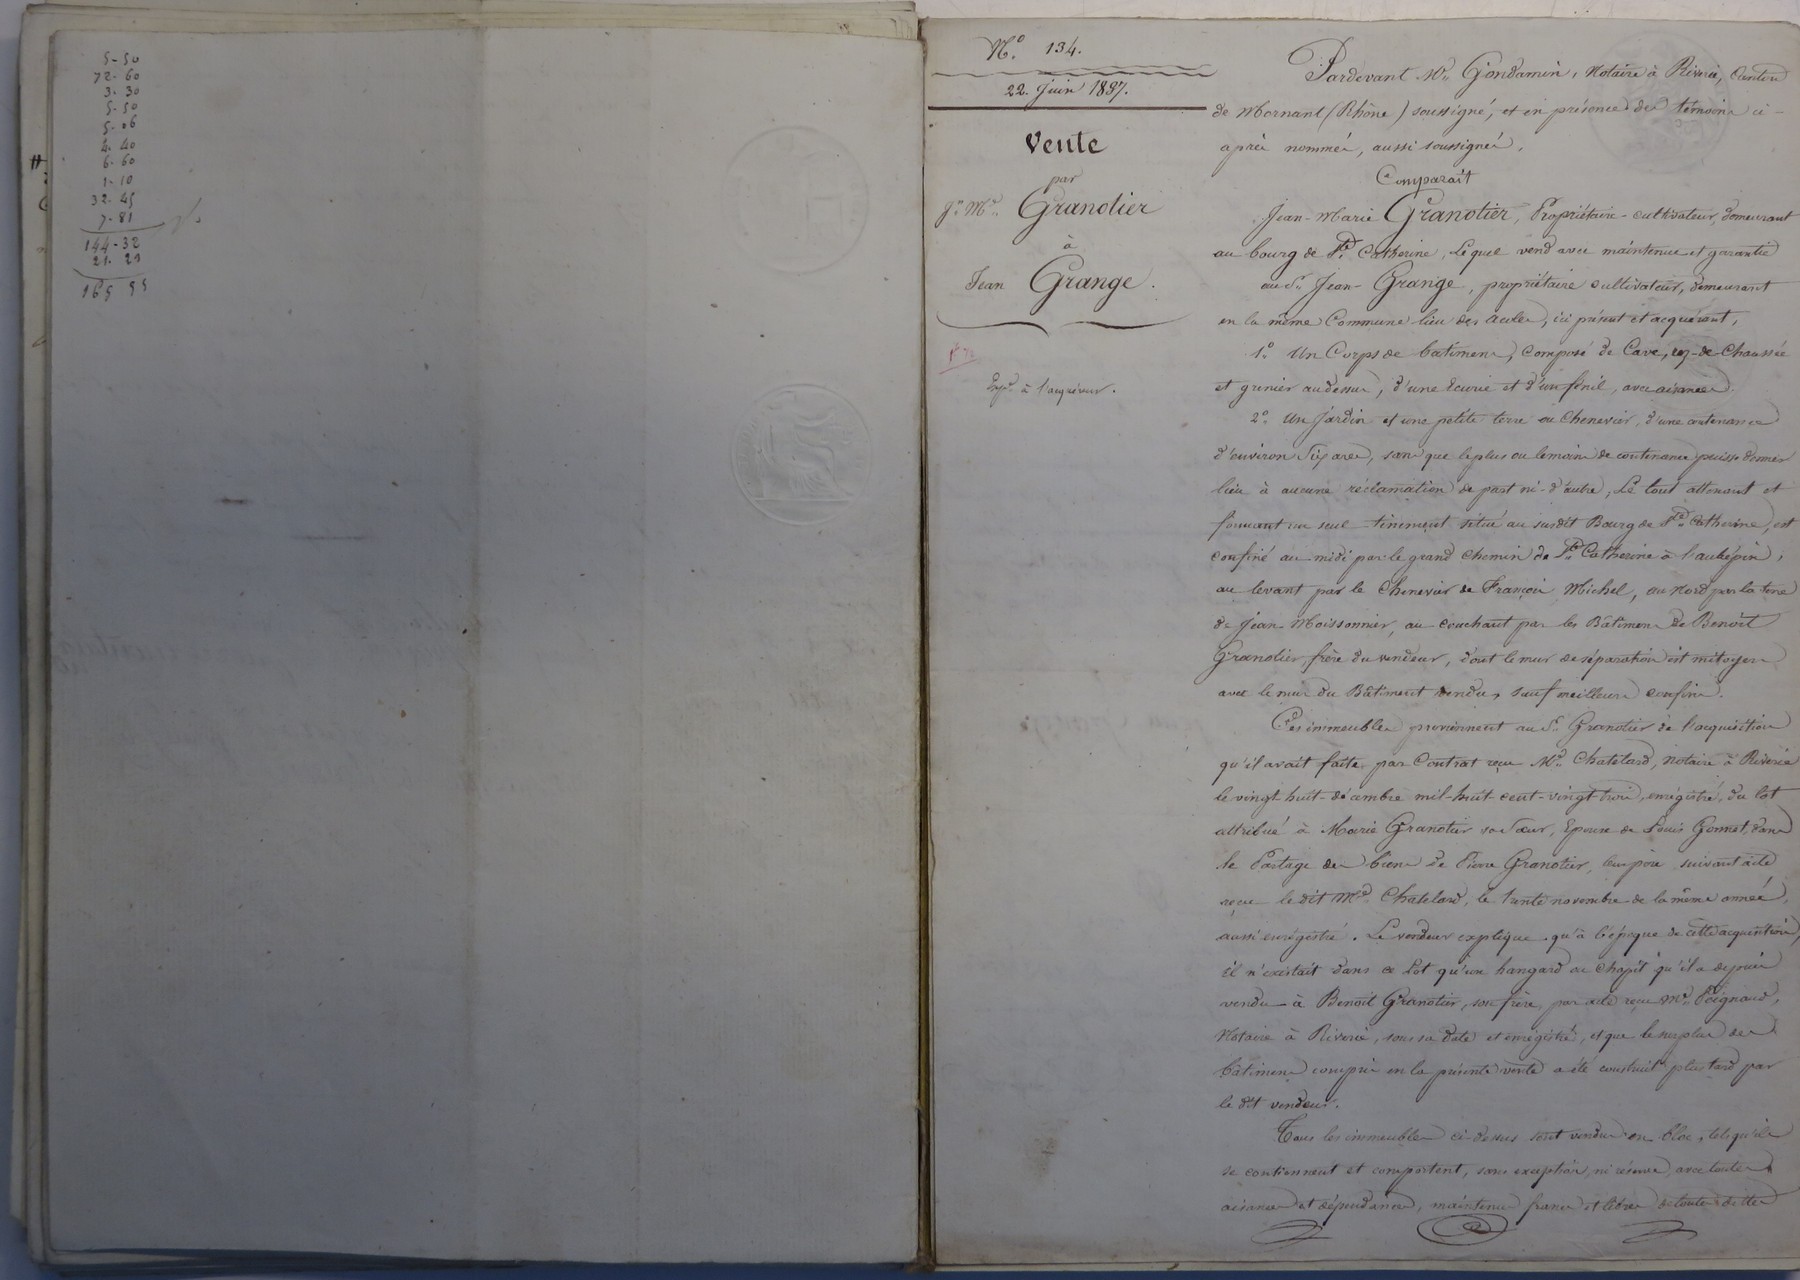 5-50
72-60
3-30
5-50
5-06
4-40
6-60
1-10
32-45
7-81
144-32
21-23
165 55
N.o 134.
22. Juin 1837.
Vente
par
Jn. Mie. Granotier
à
Jean Grange.
Expé. à l'acquéreur.
Pardevant Me. Gondamin, Notaire à Riverie, Canton
de Mornant (Rhône) soussigné, et en présence des témoins ci-
après nommés, aussi soussignés.
Comparaît
Jean-Marie Granotier, Propriétaire-cultivateur, demeurant
au bourg de Ste. Catherine, Lequel vend avec maintenue et garantie
au Sr. Jean Grange, propriétaire cultivateur, demeurant
en la même Commune lieu des, ici présent et acquérant,
1.o Un Corps de batimens, composé de Cave, rez-de-Chaussée
et grenier au dessus, d'une Ecurie et d'un fénil, avec aisances.
2.o Un Jardin et une petite terre ou Chenevier, d'une contenance
d'environ Six ares, sans que le plus ou le moins de contenance puisse donner
lieu à aucune réclamation de part ni-d'autre, Le tout attenant et
formant un seul tinement situé au susdit Bourg de Ste. Catherine, est
confiné au midi par le grand Chemin de Ste. Catherine à l'aubépin,
au levant par le Chenevier de François Michel, au Nord par la terre
de Jean Moissonnier, au couchant par les Bâtimens de Benoît
Granotier frère du vendeur, dont le mur de séparation est mitoyen
avec le mur du Bâtiment vendu, sauf meilleurs confins.
Ces immeubles proviennent au Sr. Granotier de l'acquisition
qu'il avait faite par Contrat reçu Me. Chatelard, notaire à Riverie
le vingt huit-décembre mil-huit-cent-vingt trois, enrégistré, du lot
attribué à Marie Granotier sa Sœur, Epouse de Louis Gonnet, dans
le Partage des biens de Pierre Granotier, leur père suivant acte
reçu le dit Me. Chatelard, le trente novembre de la même année,
aussi enrégistré. Le vendeur explique qu'à l'époque de cette acquisition,
il n'existait dans ce Lot qu'un hangard ou Chapit qu'il a depuis
vendu à Benoît Granotier, son frère, par acte reçu Me. Peignaud,
Notaire à Riverie, sous sa date et enrégistré, et que le surplus des
bâtimens compris en la présente vente a été construit plus tard par
le dit vendeur.
Tous les immeubles ci-dessus sont vendus en bloc, tels qu'ils
se contiennent et comportent, sans exception, ni réserve, avec toutes
aisances et dépendances, maintenus francs et libres de toutes dettes